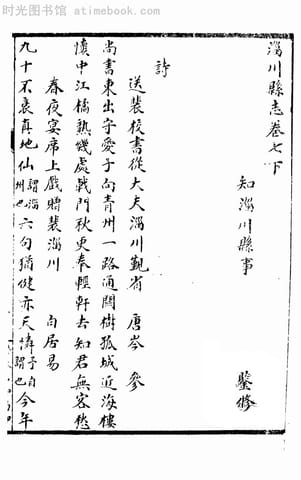 时光图书馆 - atimebook.com
淄川縣志卷七下
知淄川縣事 鑒修
詩
送裴校書從大夫淄川覲省 唐岑參
尚書東出守愛子向青州一路通關樹孤城近海樓
懷中江橘熟倚處戟門秋更奉輕軒去知君無客愁
春夜宴席上戲贈裴淄川 白居易
九十不衰真地仙謂淄州也六旬猶健亦天憐予自謂也今年